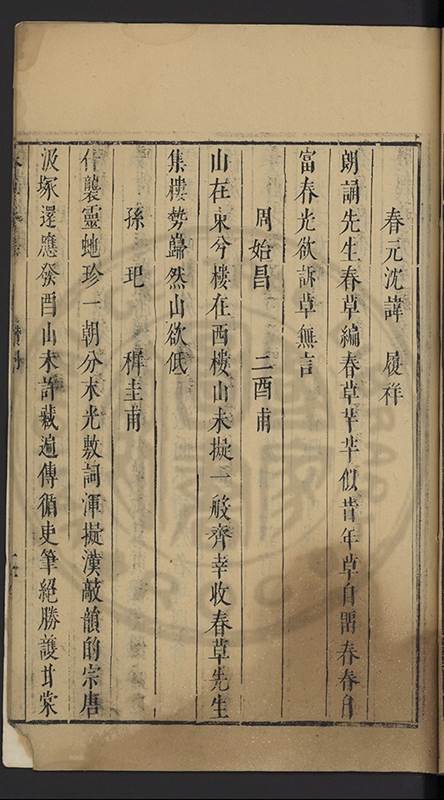 春元沈諱 履祥
朗誦先生春草編春草芊芊似昔年草自畱春春自
富春光欲訴草無言
周始昌 二酉甫
山在東兮樓在西樓山未擬一般齊幸收春草先生
集樓勢巋然山欲低
孫玘 穉圭甫
什襲靈虵珍一朝分末光敷詞渾擬漢敲韻的宗唐
汲塚還應發酉山未許藏遍傳循吏筆絕勝護甘棠